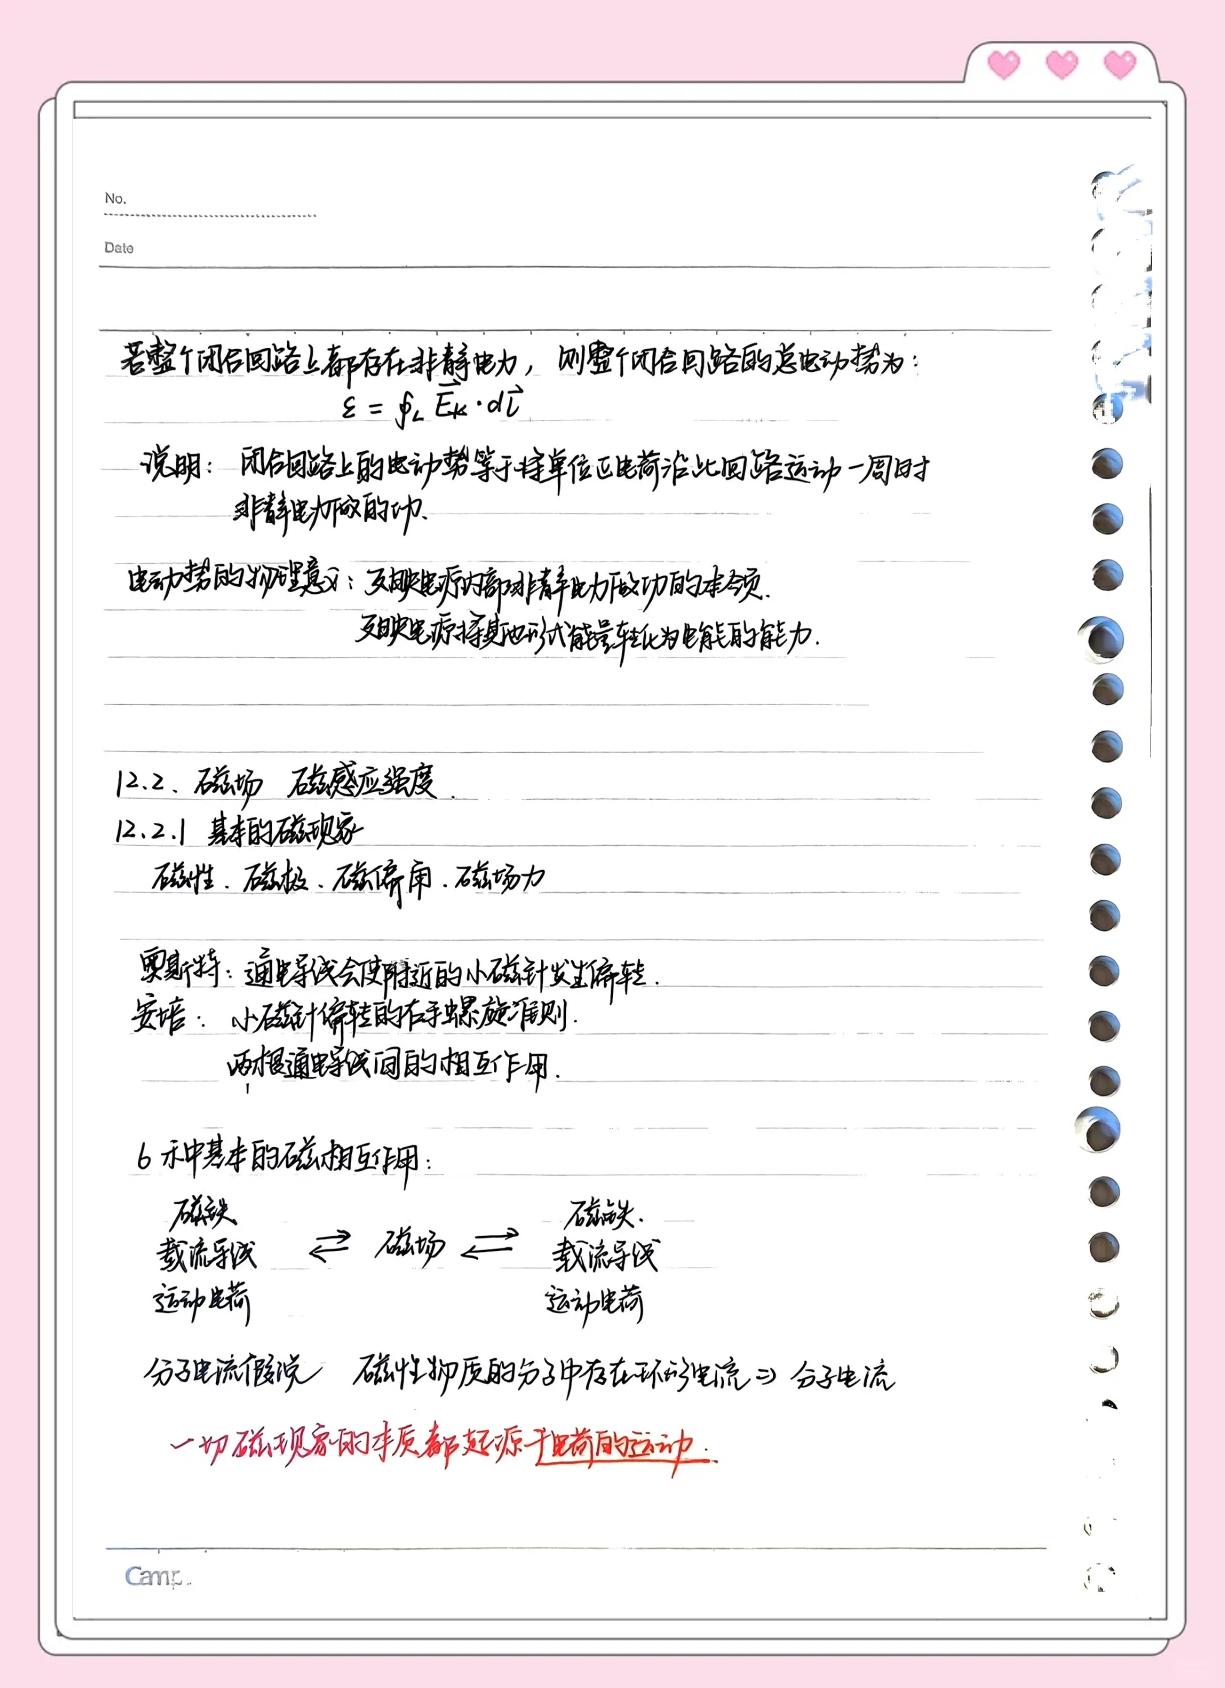 No.
Date
若整个闭合回路上都存在非静电力，则整个闭合回路的总电动势为：
ε = ∮L E⃗k · dl⃗
说明：闭合回路上的电动势等于将单位正电荷沿此回路运动一周时
非静电力做的功.
电动势的物理意义：反映电源内部非静电力做功的本领.
反映电源将其他形式能量转化为电能的能力.
12.2. 磁场 磁感应强度.
12.2.1 基本的磁现象
磁性、磁极、磁偏角、磁场力
奥斯特：通电导线会使附近的小磁针发生偏转.
安培：小磁针偏转的右手螺旋准则.
两根通电导线间的相互作用.
6种基本的磁相互作用：
磁铁 磁铁.
载流导线 ⇌ 磁场 ⇌ 载流导线
运动电荷 运动电荷
分子电流假说 磁性物质的分子中存在环形电流 ⇒ 分子电流
一切磁现象的本质都起源于电荷的运动.
Camp